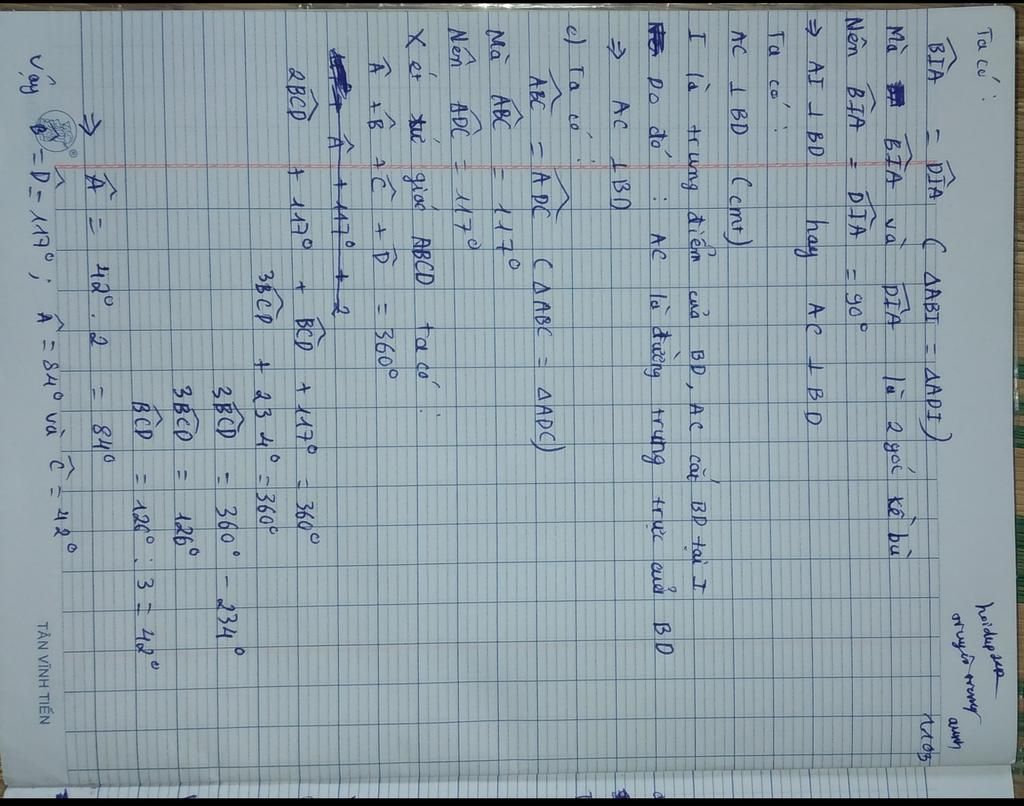 Ta có:
B̂IA = D̂IA ( ΔABI = ΔADI)
Mà B̂IA và D̂IA là 2 góc kề bù
Nên B̂IA = D̂IA = 90°
⇒ AI ⊥ BD hay AC ⊥ BD
Ta có:
AC ⊥ BD (cmt)
I là trung điểm của BD, AC cắt BD tại I
Do đó: AC là đường trung trực của BD
⇒ AC ⊥ BD
c) Ta có:
ÂBC = ÂDC ( ΔABC = ΔADC)
Mà ÂBC = 117°
Nên ÂDC = 117°
Xét tứ giác ABCD ta có:
Â + B̂ + Ĉ + D̂ = 360°
Â + 117° + 2
2B̂CD + 117° + B̂CD + 117° = 360°
3B̂CD + 234° = 360°
3B̂CD = 360° - 234°
3B̂CD = 126°
B̂CD = 126° : 3 = 42°
⇒ Â = 42° . 2 = 84°
Vậy B̂ = D̂ = 117° ; Â = 84° và Ĉ = 42°
TÂN VĨNH TIẾN